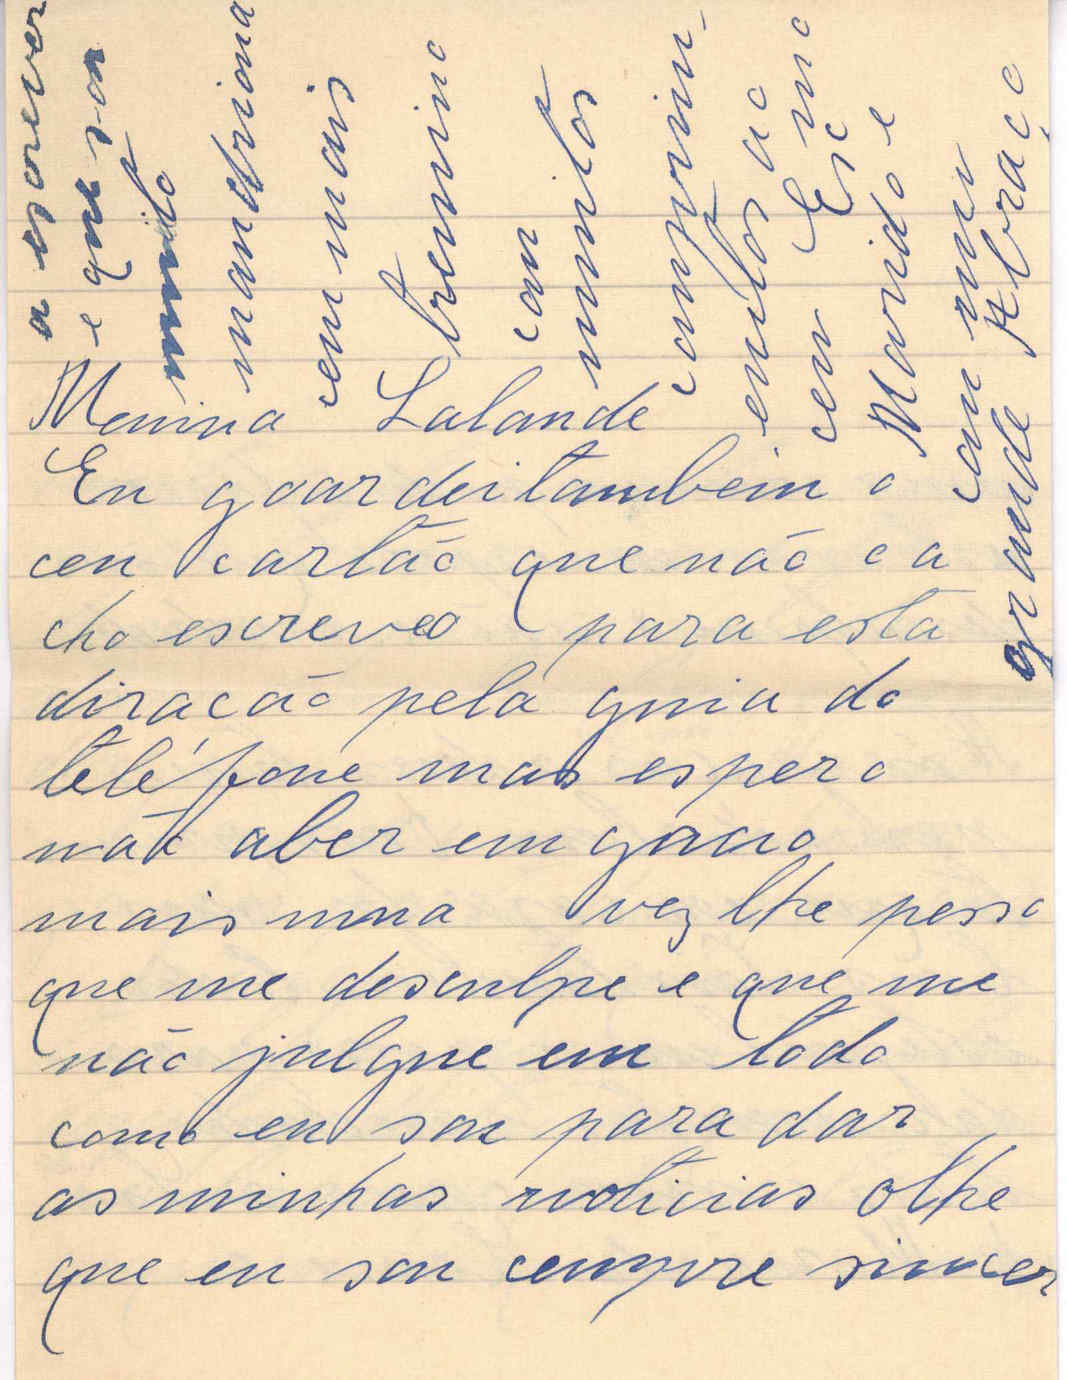 Menina Lalande
Eu goardei tambein o
ceu cartão que não o a
cho escrevo para esta
diracão pela guia do
teléfone mas espero
não aber emgano
mais uma vez lhe pesso
que me desculpe e que me
não julgue em todo
como eu sou para dar
as minhas noticias olhe
que eu sou cempre sincer
a esorever
e que sou
muito
mandriona
ceu mais
tremino
com
muitos
comprim-
entos ao
ceu Esmo
Marido e
com um
grande Abraço